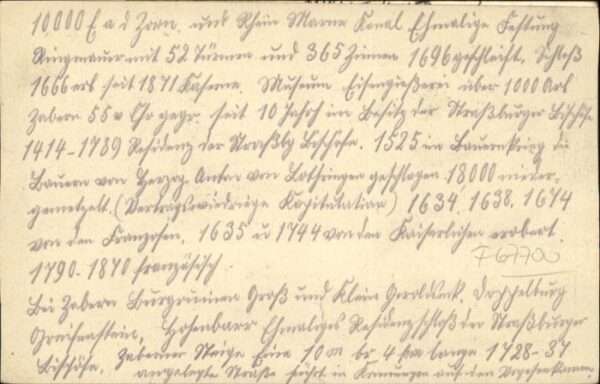 10000 E a d Zorn. und Rhein Marne Kanal Ehmalige Festung
Ringmauer mit 52 Türmen und 365 Zinnen 1696 geschleift. Schloß
1666 erb seit 1871 Kaserne. Museum Eisengießerei über 1000 Arb
Zabern 55 v Chr gegr. seit 10 Jahrh im Besitz der Straßburger Bischöfe
1414-1789 Residenz der Straßbg Bischöfe. 1525 im Bauernkrieg die
Bauern von Herzog Anton von Lothringen geschlagen 18000 nieder-
gemetzelt. (Vertragswiedriege Kapitulation) 1634, 1638, 1674
von den Franzosen, 1635 u 1744 von den Kaiserlichen erobert.
1790-1870 französisch.
F67700
Bei Zabern Burgruinen Groß und Klein Geroldseck. Doppelburg
Greifenstein, Hohenbarr Ehmaliges Residenzschloß der Straßburger
Bischöfe. Zaberner Steige Eine 10 m br 4 km lange 1728-37
angelegte Straße führt in Krümungen auf den Vogesenkamm.